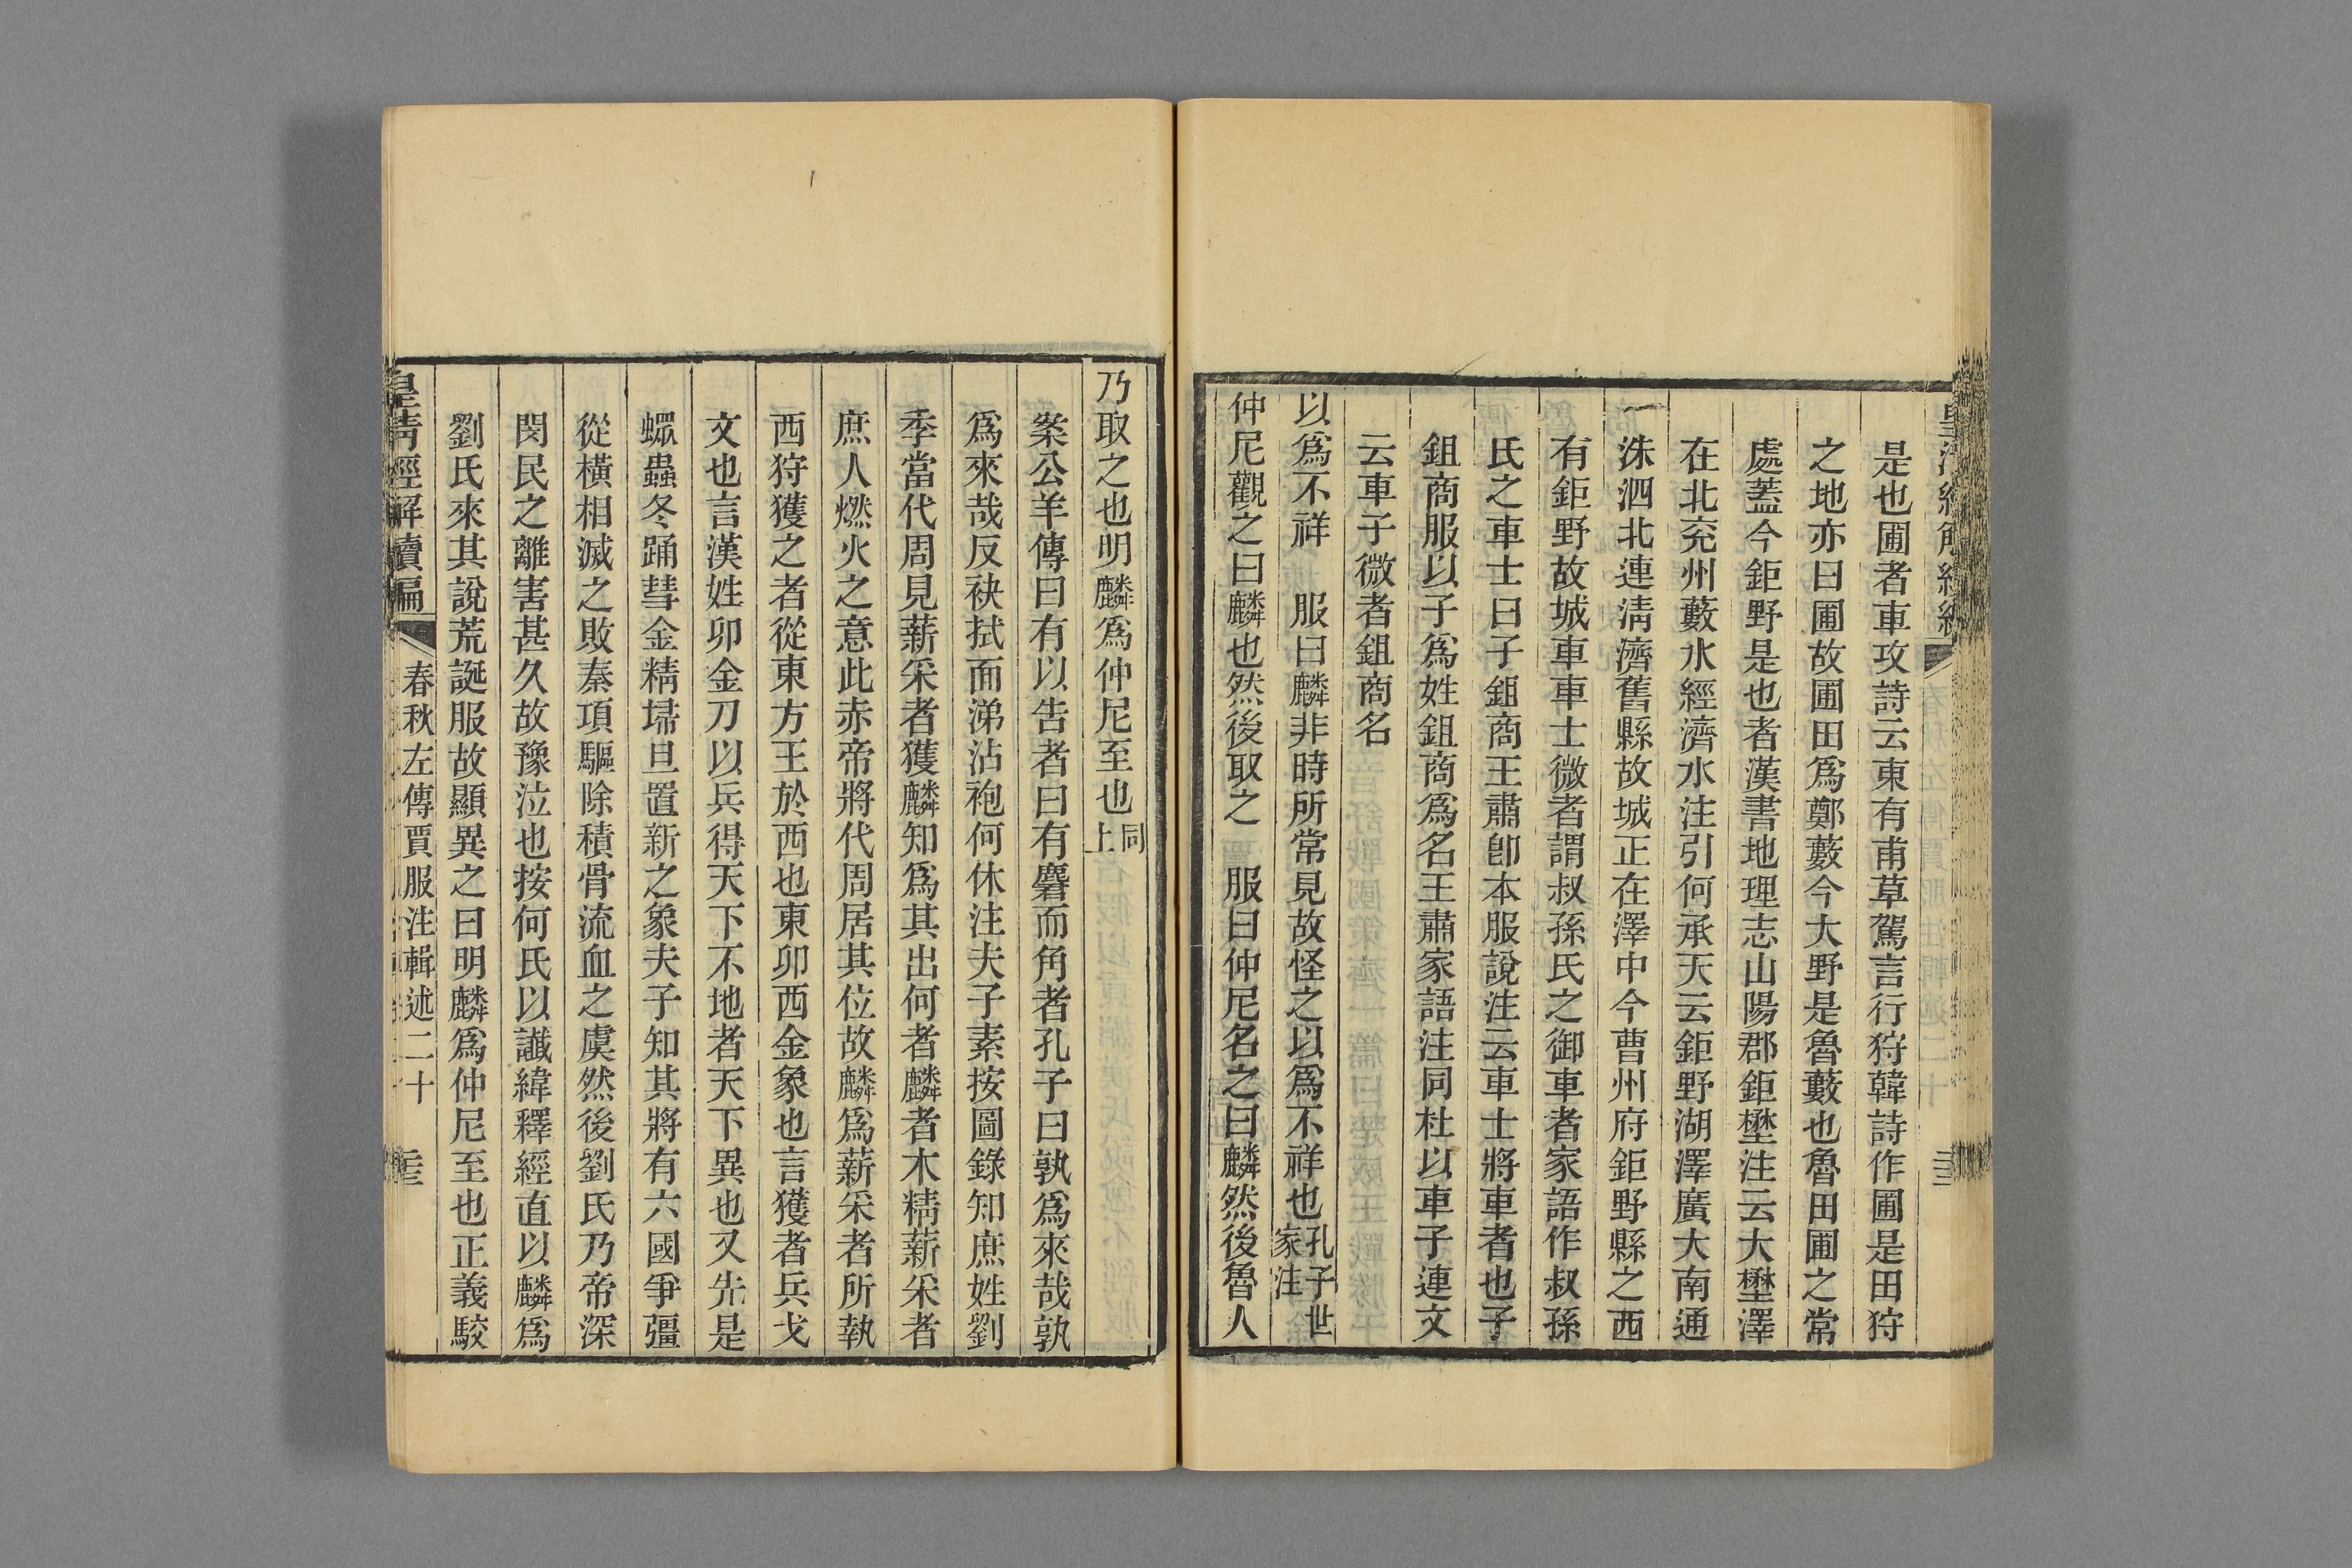 是也圃者車攻詩云東有甫草駕言行狩韓詩作圃是田狩
之地亦曰圃故圃田爲鄭藪今大野是魯藪也魯田圃之常
處蓋今鉅野是也者漢書地理志山陽郡鉅壄注云大壄澤
在北兖州藪水經濟水注引何承天云鉅野湖澤廣大南通
洙泗北連淸濟舊縣故城正在澤中今曹州府鉅野縣之西
有鉅野故城車車士微者謂叔孫氏之御車者家語作叔孫
氏之車士曰子鉏商王肅卽本服說注云車士將車者也子
鉏商服以子爲姓鉏商爲名王肅家語注同杜以車子連文
云車子微者鉏商名
以爲不祥　服曰麟非時所常見故怪之以爲不祥也孔子世家注
仲尼觀之曰麟也然後取之　服曰仲尼名之曰麟然後魯人
乃取之也明麟爲仲尼至也同上
案公羊傳曰有以告者曰有麏而角者孔子曰孰爲來哉孰
爲來哉反袂拭面涕沾袍何休注夫子素按圖錄知庶姓劉
季當代周見薪采者獲麟知爲其出何者麟者木精薪采者
庶人燃火之意此赤帝將代周居其位故麟爲薪采者所執
西狩獲之者從東方王於西也東卯西金象也言獲者兵戈
文也言漢姓卯金刀以兵得天下不地者天下異也又先是
螺蟲冬踊彗金精埽旦置新之象夫子知其將有六國爭彊
從橫相滅之敗秦項驅除積骨流血之虞然後劉氏乃帝深
閔民之離害甚久故豫泣也按何氏以讖緯釋經直以麟爲
劉氏來其說荒誕服故顯異之曰明麟爲仲尼至也正義駮
皇淸經解續編　春秋左傳賈服注輯述二十